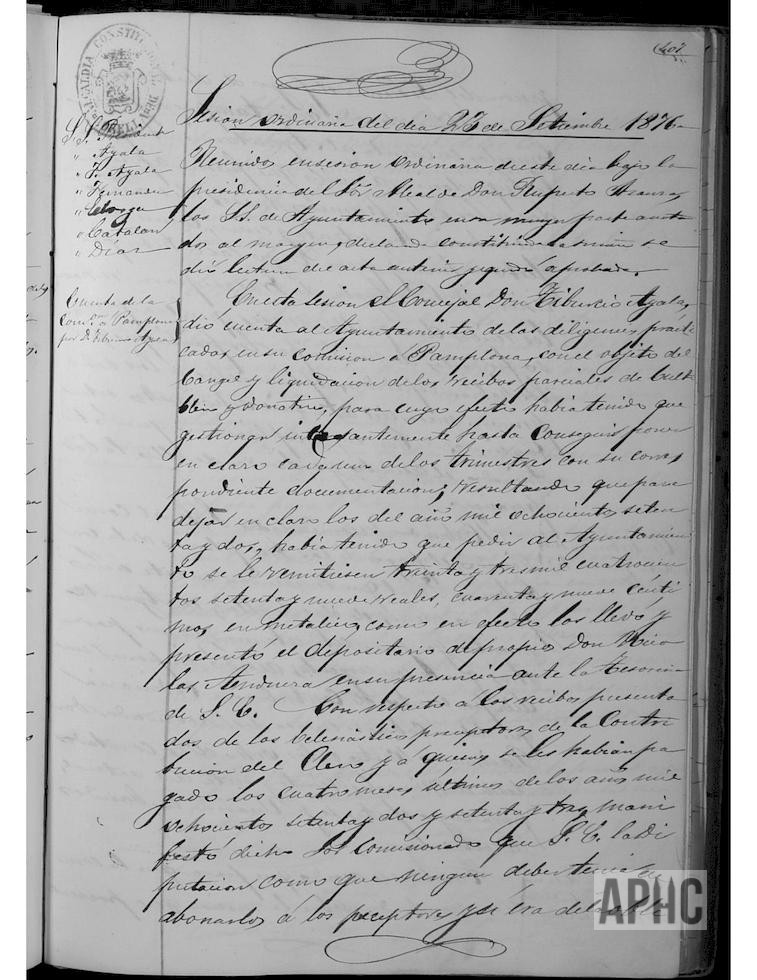 407
ALCALDIA CONSTITUCIONAL DE CORELLA
Sesion ordinaria del dia 23 de Setiembre 1876
S. S. Presidente
" Ayala
" F. Ayala
" Fernandez
" Catalan
" Diaz
Reunidos en sesion ordinaria de este dia bajo la
presidencia del Sor Alcalde Don Ruperto
los S.S. de Ayuntamiento en su mayor parte anota
dos al margen, declarada constituida la misma se
dió lectura del acta anterior y quedó aprobada.
Cuenta de la
Comon a Pamplona
por Dn Tiburcio Ayala
En esta sesion el Concejal Don Tiburcio Ayala,
dió cuenta al Ayuntamiento de las diligencias practi
cadas en su comision á Pamplona, con el objeto del
Cange y liquidacion de los recibos parciales de Culto
Clero y donativo, para cuyo efecto habia tenido que
gestionar incesantemente hasta conseguir poner
en claro cada uno de los trimestres con su corres
pondiente documentacion; resultando que para
dejar en claro los del año mil ochocientos seten
ta y dos, habia tenido que pedir al Ayuntamien
to se le remitiesen treinta y tres mil cuatrocien
tos setenta y nueve reales, cuarenta y nueve cénti
mos, en metalico, como en efecto los llevó y
presentó el depositario de propios Don Nico
las en su presencia ante la Tesoreria
de S. E. Con respecto a los recibos presenta
dos de los Eclesiásticos preceptores de la Contri
bucion del Clero y á quienes se les habian pa
gado los cuatro meses últimos de los años mil
ochocientos setenta y dos y setenta y tres, mani
festó dicho Sor Comisionado que S. E. la Di
putacion como que ningun deber tenia de
abonarlos á los perceptores y si era
APHC